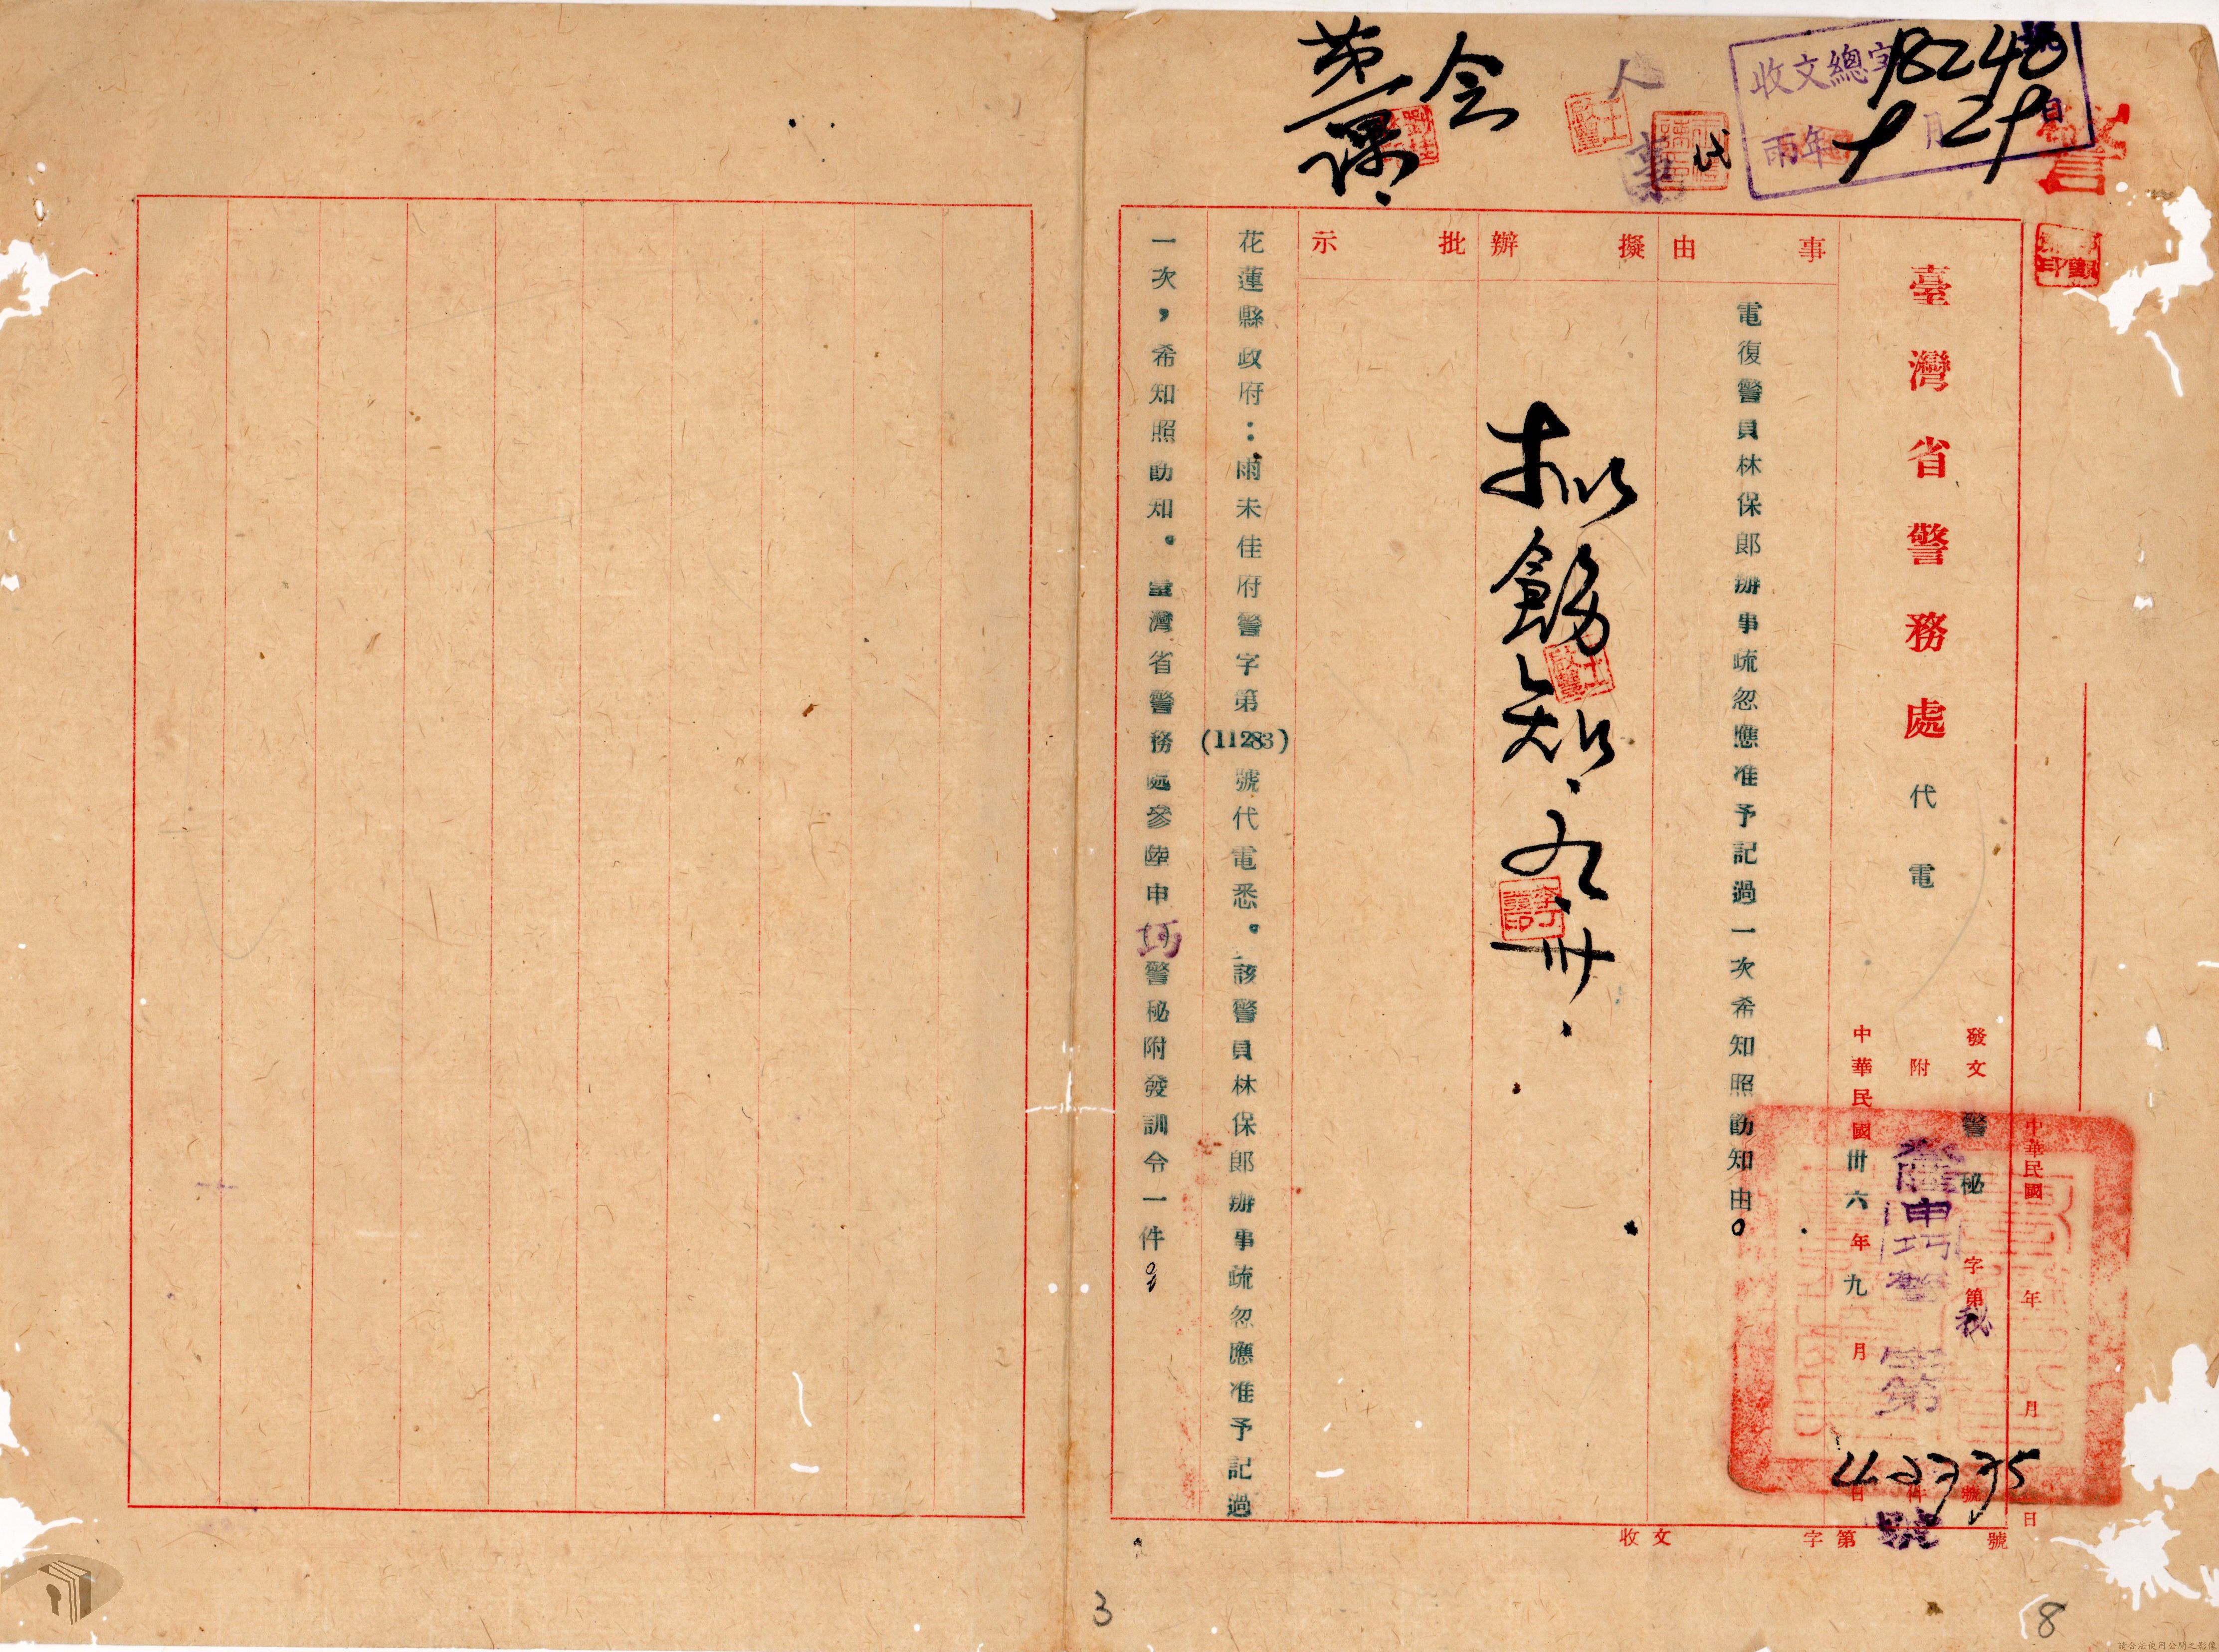 警
收文總字 18248 號
雨年 月 日
代
会
第一課
臺灣省警務處代電
發文 警秘字第 號
附 件
中華民國卅六年九月 日
中華民國 年 月 日
秘
字第
42335
號
事由
電復警員林保郎辦事疏忽應准予記過一次希知照飭知由。
擬辦
拟飭知. 九.卅.
批示
花蓮縣政府：雨未佳府警字第(11283)號代電悉。該警員林保郎辦事疏忽應准予記過
一次，希知照飭知。臺灣省警務處參陸申 警秘附發訓令一件
收文 字第 號
3
8
請合法使用公開之影像